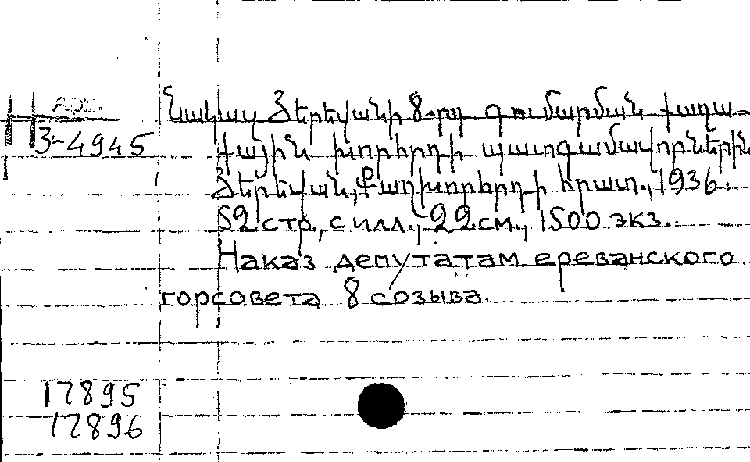 арм.
3-4945
Նակազ Յերեվանի 8-րդ գումարման քաղա-
քային խորհրդի պատգամավորներին
Յերեվան, Քաղխորհրդի հրատ., 1936.
52 стр., с илл., 22 см., 1500 экз.
Наказ депутатам ереванского
горсовета 8 созыва.
17895
17896